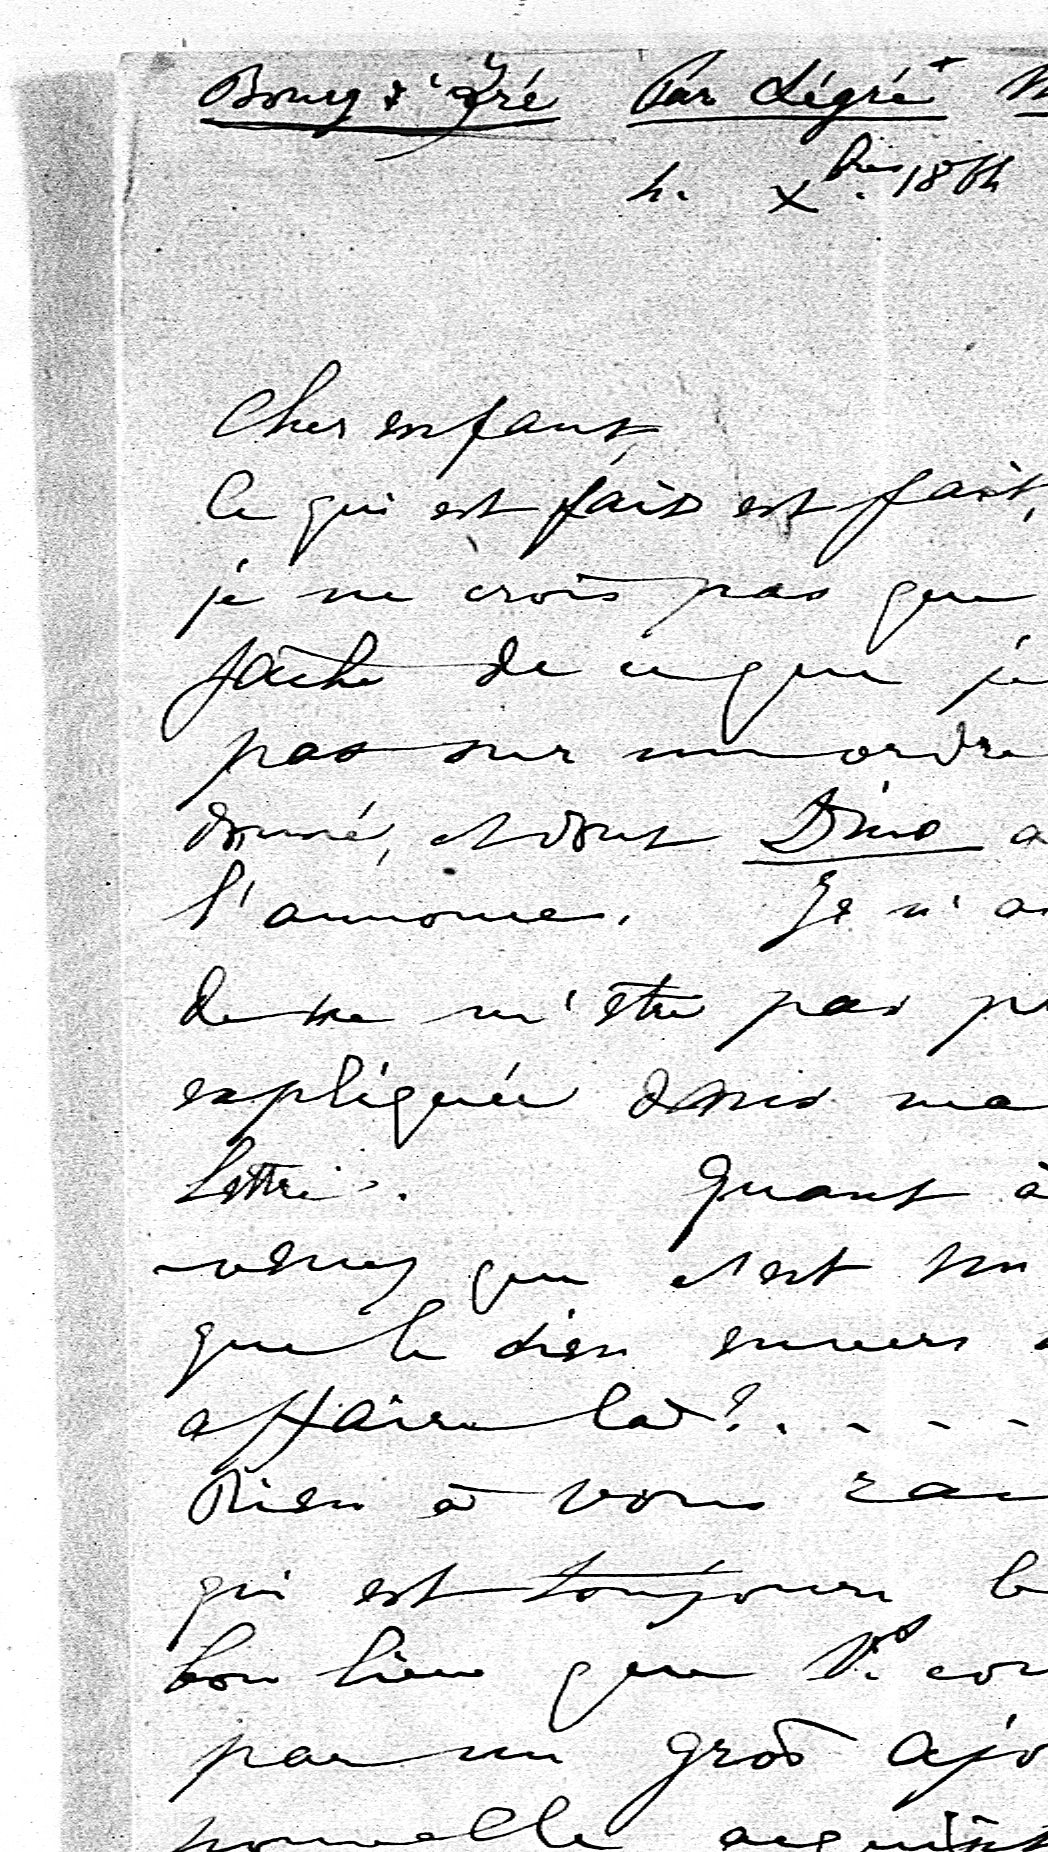 Bourg d'Iré Par Ségré
4. Xbre 1864
Cher enfant,
Ce qui est fait est fait,
je ne crois pas que
fâché de ce que je
pas sur un ordre
donné, et dont Dino a
l'annonce. Je n'ai
de ne m'être pas
expliquée dans ma
lettre. Quant à
venez que c'est un
que le dien envers
affaire là? . . . .
Rien à vous
qui est toujours le
bon lieu que V.s
par un gros ajo
nouvelle acquisit